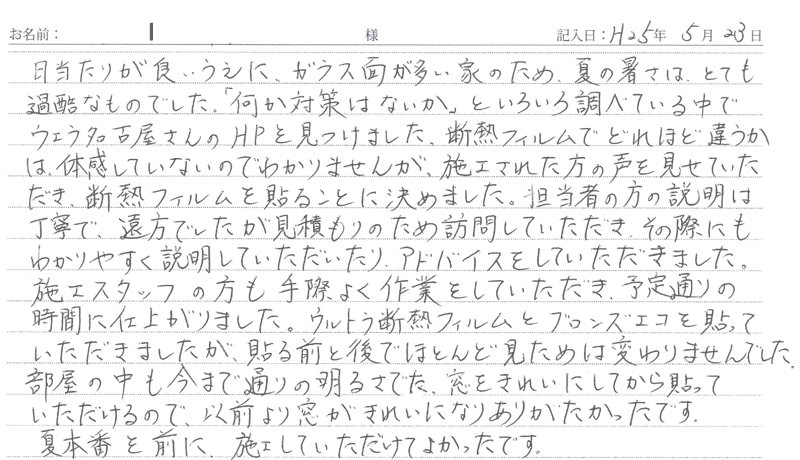 お名前： 様 記入日：H25年 5月 23日
日当たりが良いうえに、ガラス面が多い家のため、夏の暑さは、とても
過酷なものでした。「何か対策はないか」といろいろ調べている中で
ウェラ名古屋さんのHPを見つけました。断熱フィルムでどれほど違うか
は、体感していないのでわかりませんが、施工された方の声を見せていた
だき、断熱フィルムを貼ることに決めました。担当者の方の説明は
丁寧で、遠方でしたが見積もりのため訪問していただき、その際にも
わかりやすく説明していただいたり、アドバイスをしていただきました。
施工スタッフの方も手際よく作業をしていただき、予定通りの
時間に仕上がりました。ウルトラ断熱フィルムとブロンズエコを貼って
いただきましたが、貼る前と後でほとんど見ためは変わりませんでした。
部屋の中も今まで通りの明るさでた、窓をきれいにしてから貼って
いただけるので、以前より窓がきれいになりありがたかったです。
夏本番を前に、施工していただけてよかったです。